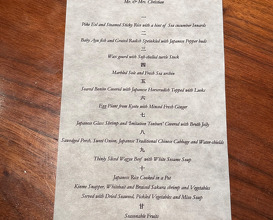 Mr. & Mrs. Christian
一
Pike Eel and Steamed Sticky Rice with a hint of Sea cucumber Innards
二
Baby Ayu fish and Grated Radish Sprinkled with Japanese Pepper buds
三
Wax gourd with Soft-shelled turtle Stock
四
Marbled Sole and Fresh Sea urchin
五
Seared Bonito Covered with Japanese Horseradish Topped with Leeks
六
Egg Plant from Kyoto with Minced Fresh Ginger
七
Japanese Glass Shrimp and "Imitation Tortoise" Covered with Broth Jelly
八
Perch, Sweet Onion, Japanese Traditional Chinese Cabbage and Water-shields
九
Thinly Sliced Wagyu Beef with White Sesame Soup
十
Japanese Rice Cooked in a Pot
Kinme Snapper, Whitebait and Broiled Sakura shrimp and Vegetables
Served with Dried Seaweed, Pickled Vegetables and Miso Soup
Seasonable Fruits